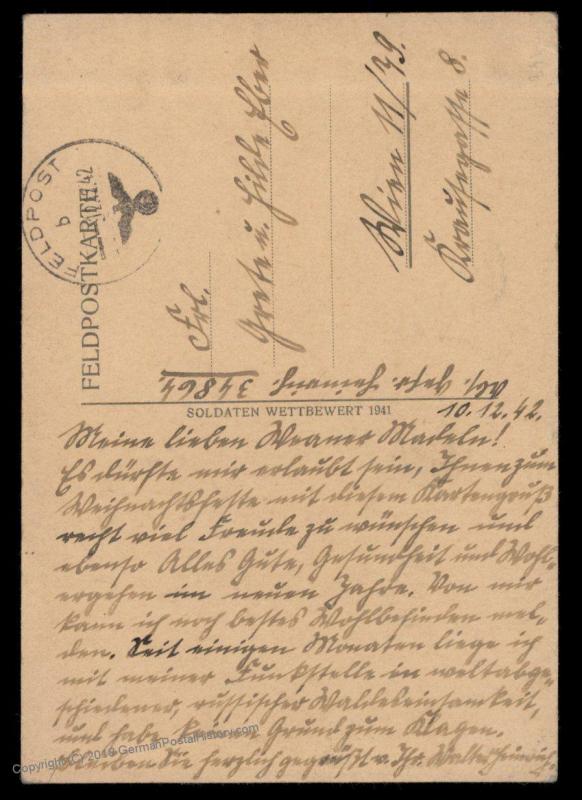 FELDPOST
b
11.12.42
FELDPOSTKARTE
Frl.
Grete u. Hilde
Wien 11/79.
Krausegasse 8.
Abs. Gefr. 34864
SOLDATEN WETTBEWERT 1941
10.12.42.
Meine lieben Weaner Madeln!
Es dürfte mir erlaubt sein, Ihnen zum
Weihnachtsfeste mit diesem Kartengruß
recht viel Freude zu wünschen und
ebenso Alles Gute, Gesundheit und Wohl-
ergehen im neuen Jahre. Von mir
kann ich noch bestes Wohlbefinden mel-
den. Seit einigen Monaten liege ich
mit meiner Funkstelle in weltabge-
schiedener, russischer Waldeseinsamkeit,
und habe keinen Grund zum Klagen.
Bleiben Sie herzlich gegrüßt v. Ihr. Walter Heinrich
Copyright (C) 2019 GermanPostalHistory.com